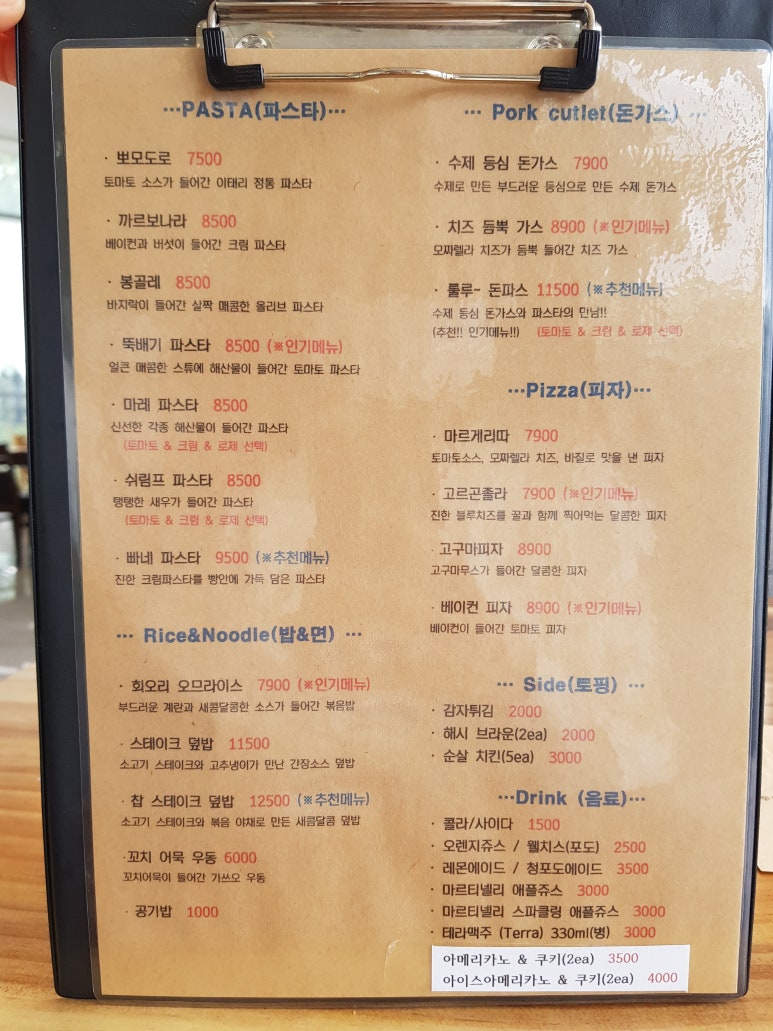 ···PASTA(파스타)···
· 뽀모도로 7500
토마토 소스가 들어간 이태리 정통 파스타
· 까르보나라 8500
베이컨과 버섯이 들어간 크림 파스타
· 봉골레 8500
바지락이 들어간 살짝 매콤한 올리브 파스타
· 뚝배기 파스타 8500 (※인기메뉴)
얼큰 매콤한 스튜에 해산물이 들어간 토마토 파스타
· 마레 파스타 8500
신선한 각종 해산물이 들어간 파스타
(토마토 & 크림 & 로제 선택)
· 쉬림프 파스타 8500
탱탱한 새우가 들어간 파스타
(토마토 & 크림 & 로제 선택)
· 빠네 파스타 9500 (※추천메뉴)
진한 크림파스타를 빵안에 가득 담은 파스타
··· Rice&Noodle(밥&면) ···
· 회오리 오므라이스 7900 (※인기메뉴)
부드러운 계란과 새콤달콤한 소스가 들어간 볶음밥
· 스테이크 덮밥 11500
소고기 스테이크와 고추냉이가 만난 간장소스 덮밥
· 찹 스테이크 덮밥 12500 (※추천메뉴)
소고기 스테이크와 볶음 야채로 만든 새콤달콤 덮밥
·꼬치 어묵 우동 6000
꼬치어묵이 들어간 가쓰오 우동
· 공기밥 1000
··· Pork cutlet(돈가스) ···
· 수제 등심 돈가스 7900
수제로 만든 부드러운 등심으로 만든 수제 돈가스
· 치즈 듬뿍 가스 8900 (※인기메뉴)
모짜렐라 치즈가 듬뿍 들어간 치즈 가스
· 룰루~ 돈파스 11500 (※추천메뉴)
수제 등심 돈가스와 파스타의 만남!!
(추천!! 인기메뉴!!) (토마토 & 크림 & 로제 선택)
···Pizza(피자)···
· 마르게리따 7900
토마토소스, 모짜렐라 치즈, 바질로 맛을 낸 피자
· 고르곤졸라 7900 (※인기메뉴)
진한 블루치즈를 꿀과 함께 찍어먹는 달콤한 피자
· 고구마피자 8900
고구마무스가 들어간 달콤한 피자
· 베이컨 피자 8900 (※인기메뉴)
베이컨이 들어간 토마토 피자
··· Side(토핑) ···
· 감자튀김 2000
· 해시 브라운(2ea) 2000
· 순살 치킨(5ea) 3000
···Drink (음료)···
· 콜라/사이다 1500
· 오렌지쥬스 / 웰치스(포도) 2500
· 레몬에이드 / 청포도에이드 3500
· 마르티넬리 애플쥬스 3000
· 마르티넬리 스파클링 애플쥬스 3000
· 테라맥주 (Terra) 330ml(병) 3000
아메리카노 & 쿠키(2ea) 3500
아이스아메리카노 & 쿠키(2ea) 4000